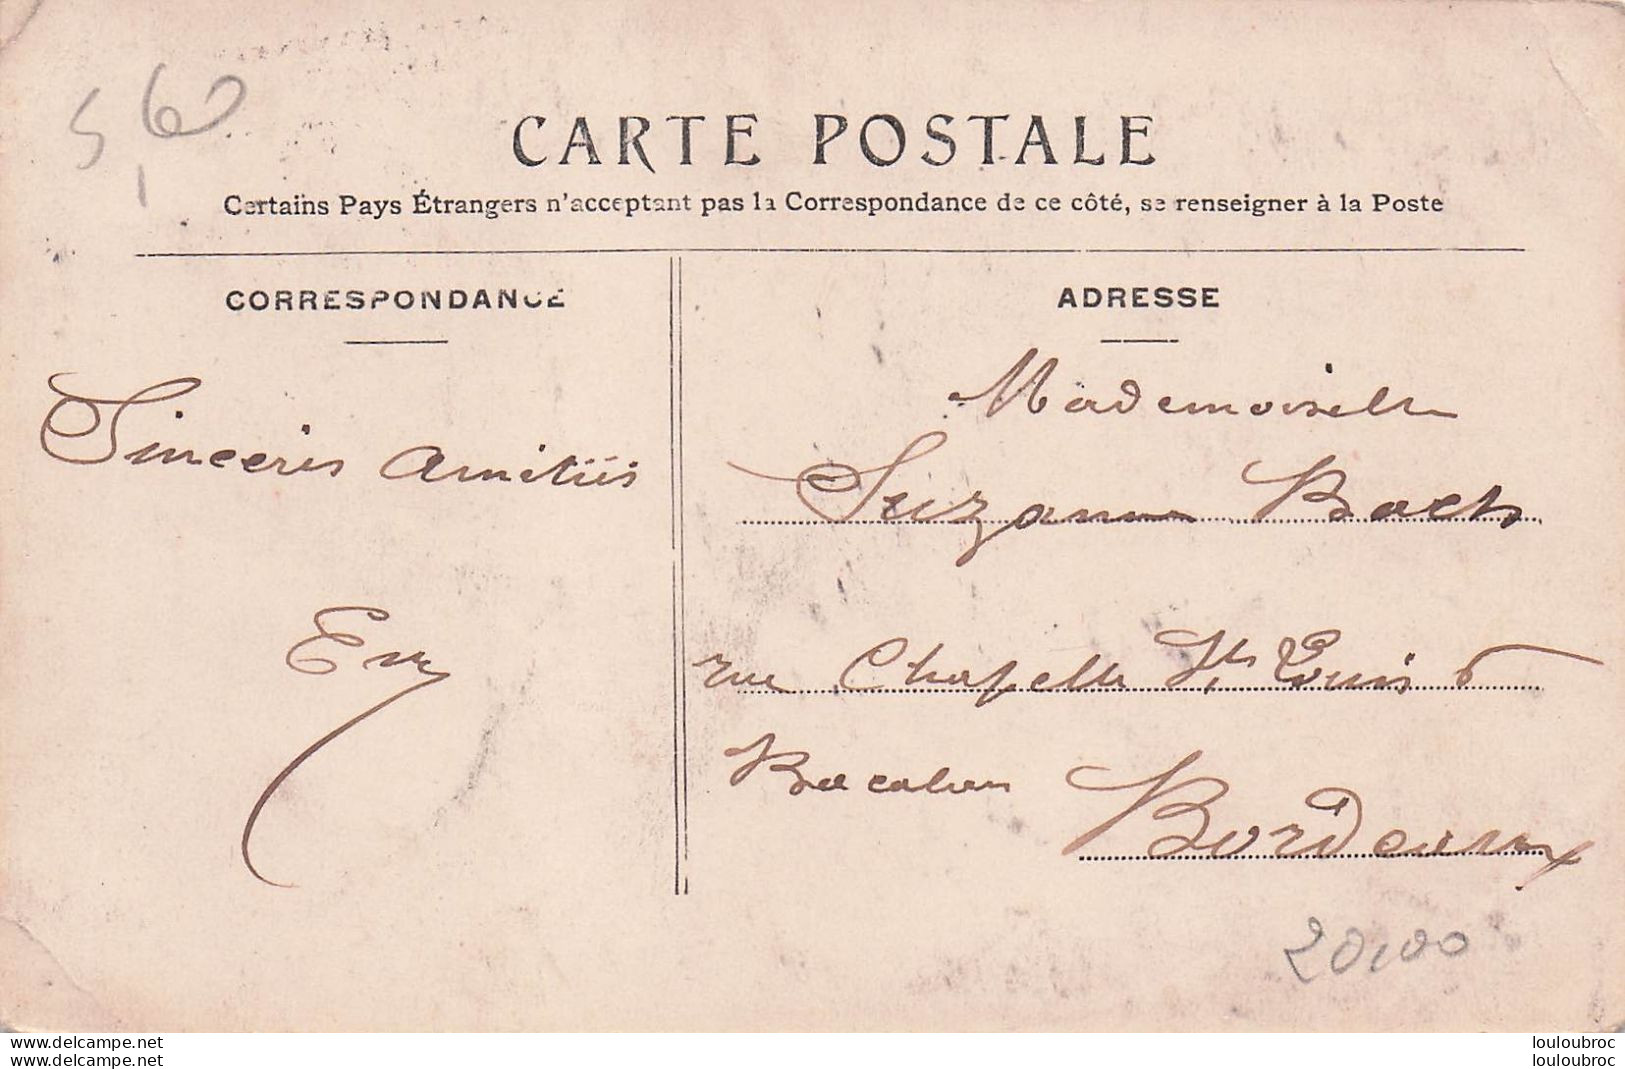 5,60
CARTE POSTALE
Certains Pays Étrangers n'acceptant pas la Correspondance de ce côté, se renseigner à la Poste
CORRESPONDANCE
Sincères Amitiés
ADRESSE
Mademoiselle
Suzanne
rue Chapelle St Louis 6
Bacalan Bordeaux
20,00
www.delcampe.net
www.delcampe.net
louloubroc
louloubroc